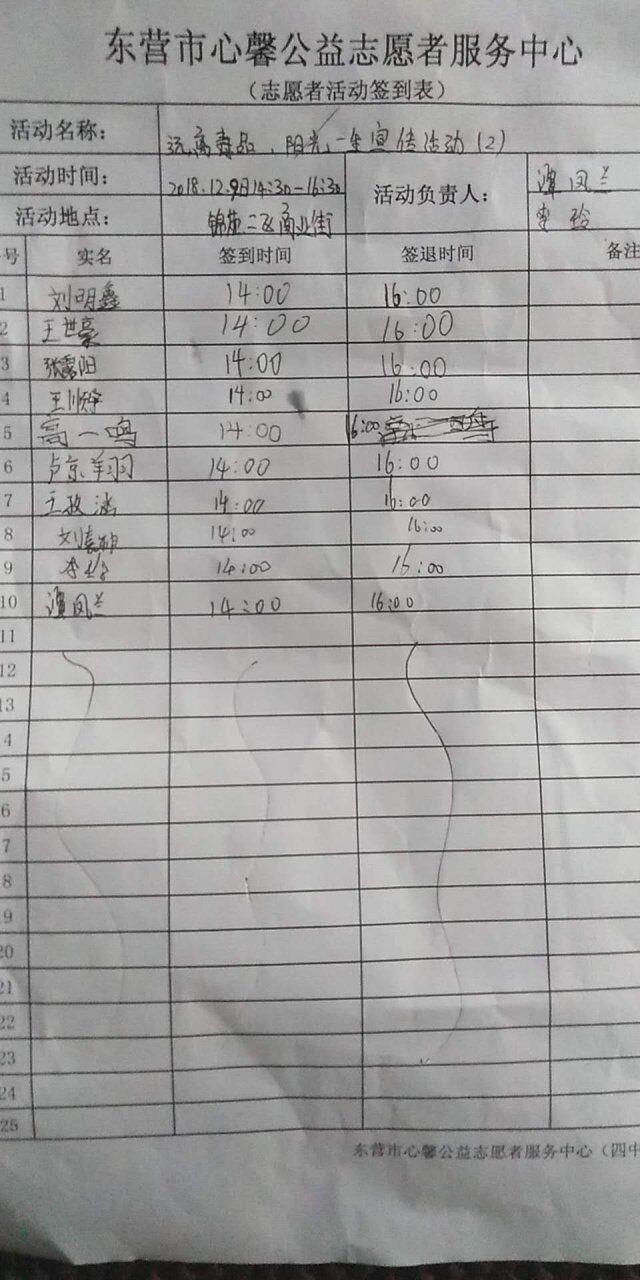 东营市心馨公益志愿者服务中心
（志愿者活动签到表）
活动名称： 远离毒品，阳光一生宣传活动（2）
活动时间： 2018.12.9日14:30-16:30 活动负责人： 谭凤兰
活动地点： 商业街 李玲
号 实名 签到时间 签退时间 备注
1 刘明鑫 14:00 16:00
2 王世豪 14:00 16:00
3 张露阳 14:00 16:00
4 王顺 14:00 16:00
5 高一鸣 14:00 16:00
6 卢京羽 14:00 16:00
7 王政 14:00 16:00
8 刘 14:00 16:00
9 李玲 14:00 16:00
10 谭凤兰 14:00 16:00
11
12
13
4
5
6
7
8
9
20
21
22
23
24
25
东营市心馨公益志愿者服务中心（四中